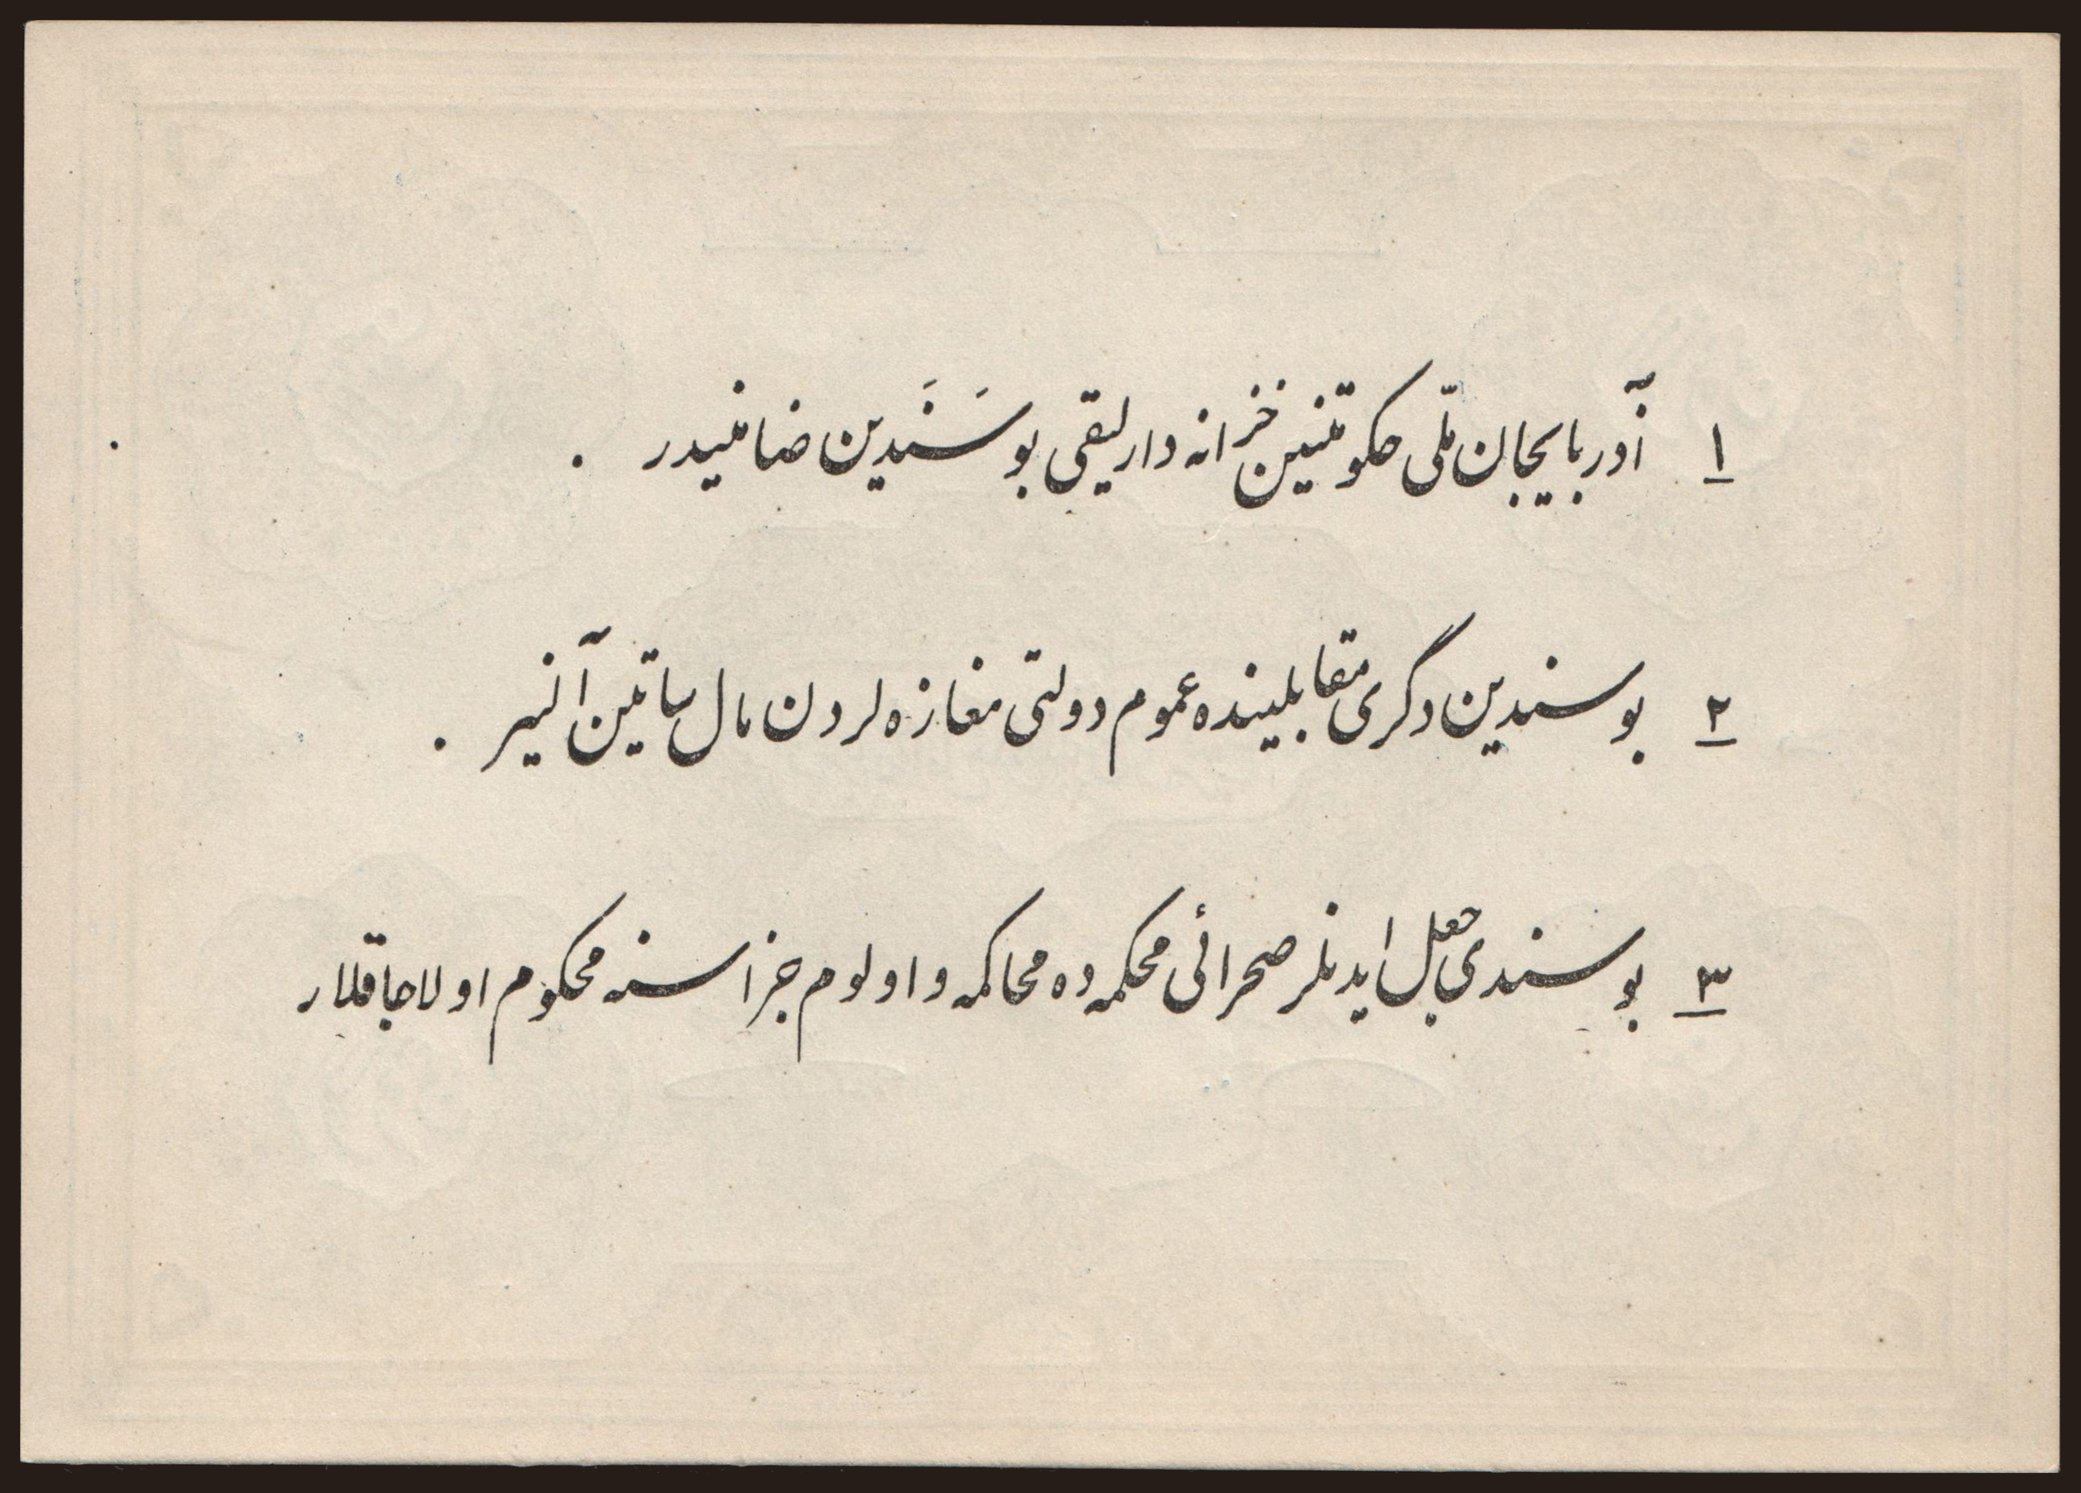 ١ آذربایجان ملّی حکومتنین خزانه دارلیقی بو سَنَدین ضامنیدر .
٢ بو سندین دگری مقابلینده عموم دولتی مغازه لردن مال ساتین آلنیر .
٣ بو سندی جعل ایدنلر صحرائی محکمه ده محاکمه و اولوم جزاسنه محکوم اولاجاقلار